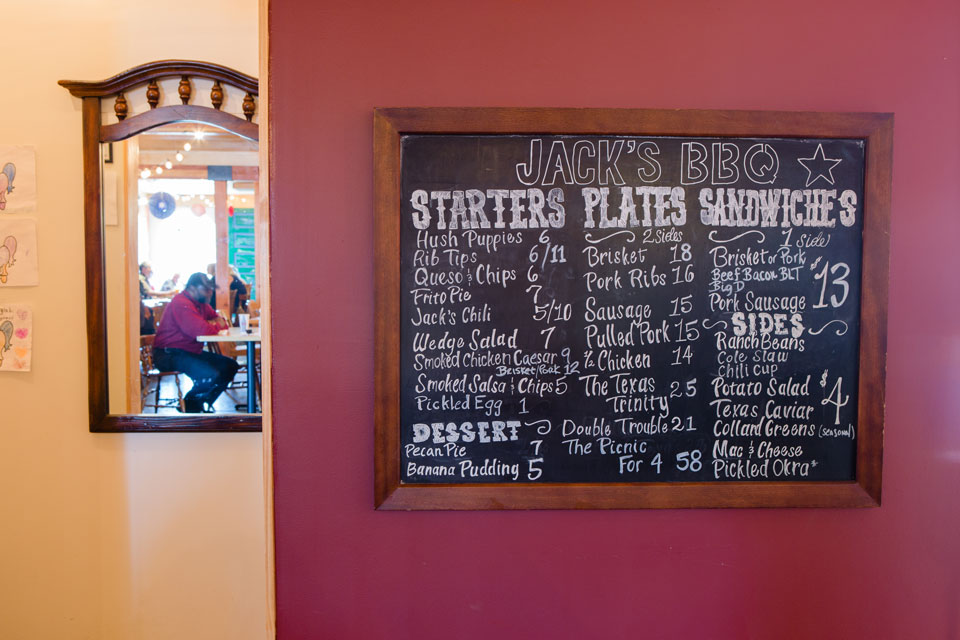 JACK'S BBQ
STARTERS
Hush Puppies 6
Rib Tips 6/11
Queso & Chips 6
Frito Pie 7
Jack's Chili 5/10
Wedge Salad 7
Smoked Chicken Caesar 9
Brisket/Pork 12
Smoked Salsa & Chips 5
Pickled Egg 1
DESSERT
Pecan Pie 7
Banana Pudding 5
PLATES
2 Sides
Brisket 18
Pork Ribs 16
Sausage 15
Pulled Pork 15
1/2 Chicken 14
The Texas Trinity 25
Double Trouble 21
The Picnic
For 4 58
SANDWICHE'S
1 Side
Brisket or Pork
Beef Bacon BLT
Big D
Pork Sausage
$13
SIDES
Ranch Beans
Cole Slaw
Chili Cup
Potato Salad
Texas Caviar
Collard Greens (seasonal)
Mac & Cheese
Pickled Okra*
$4